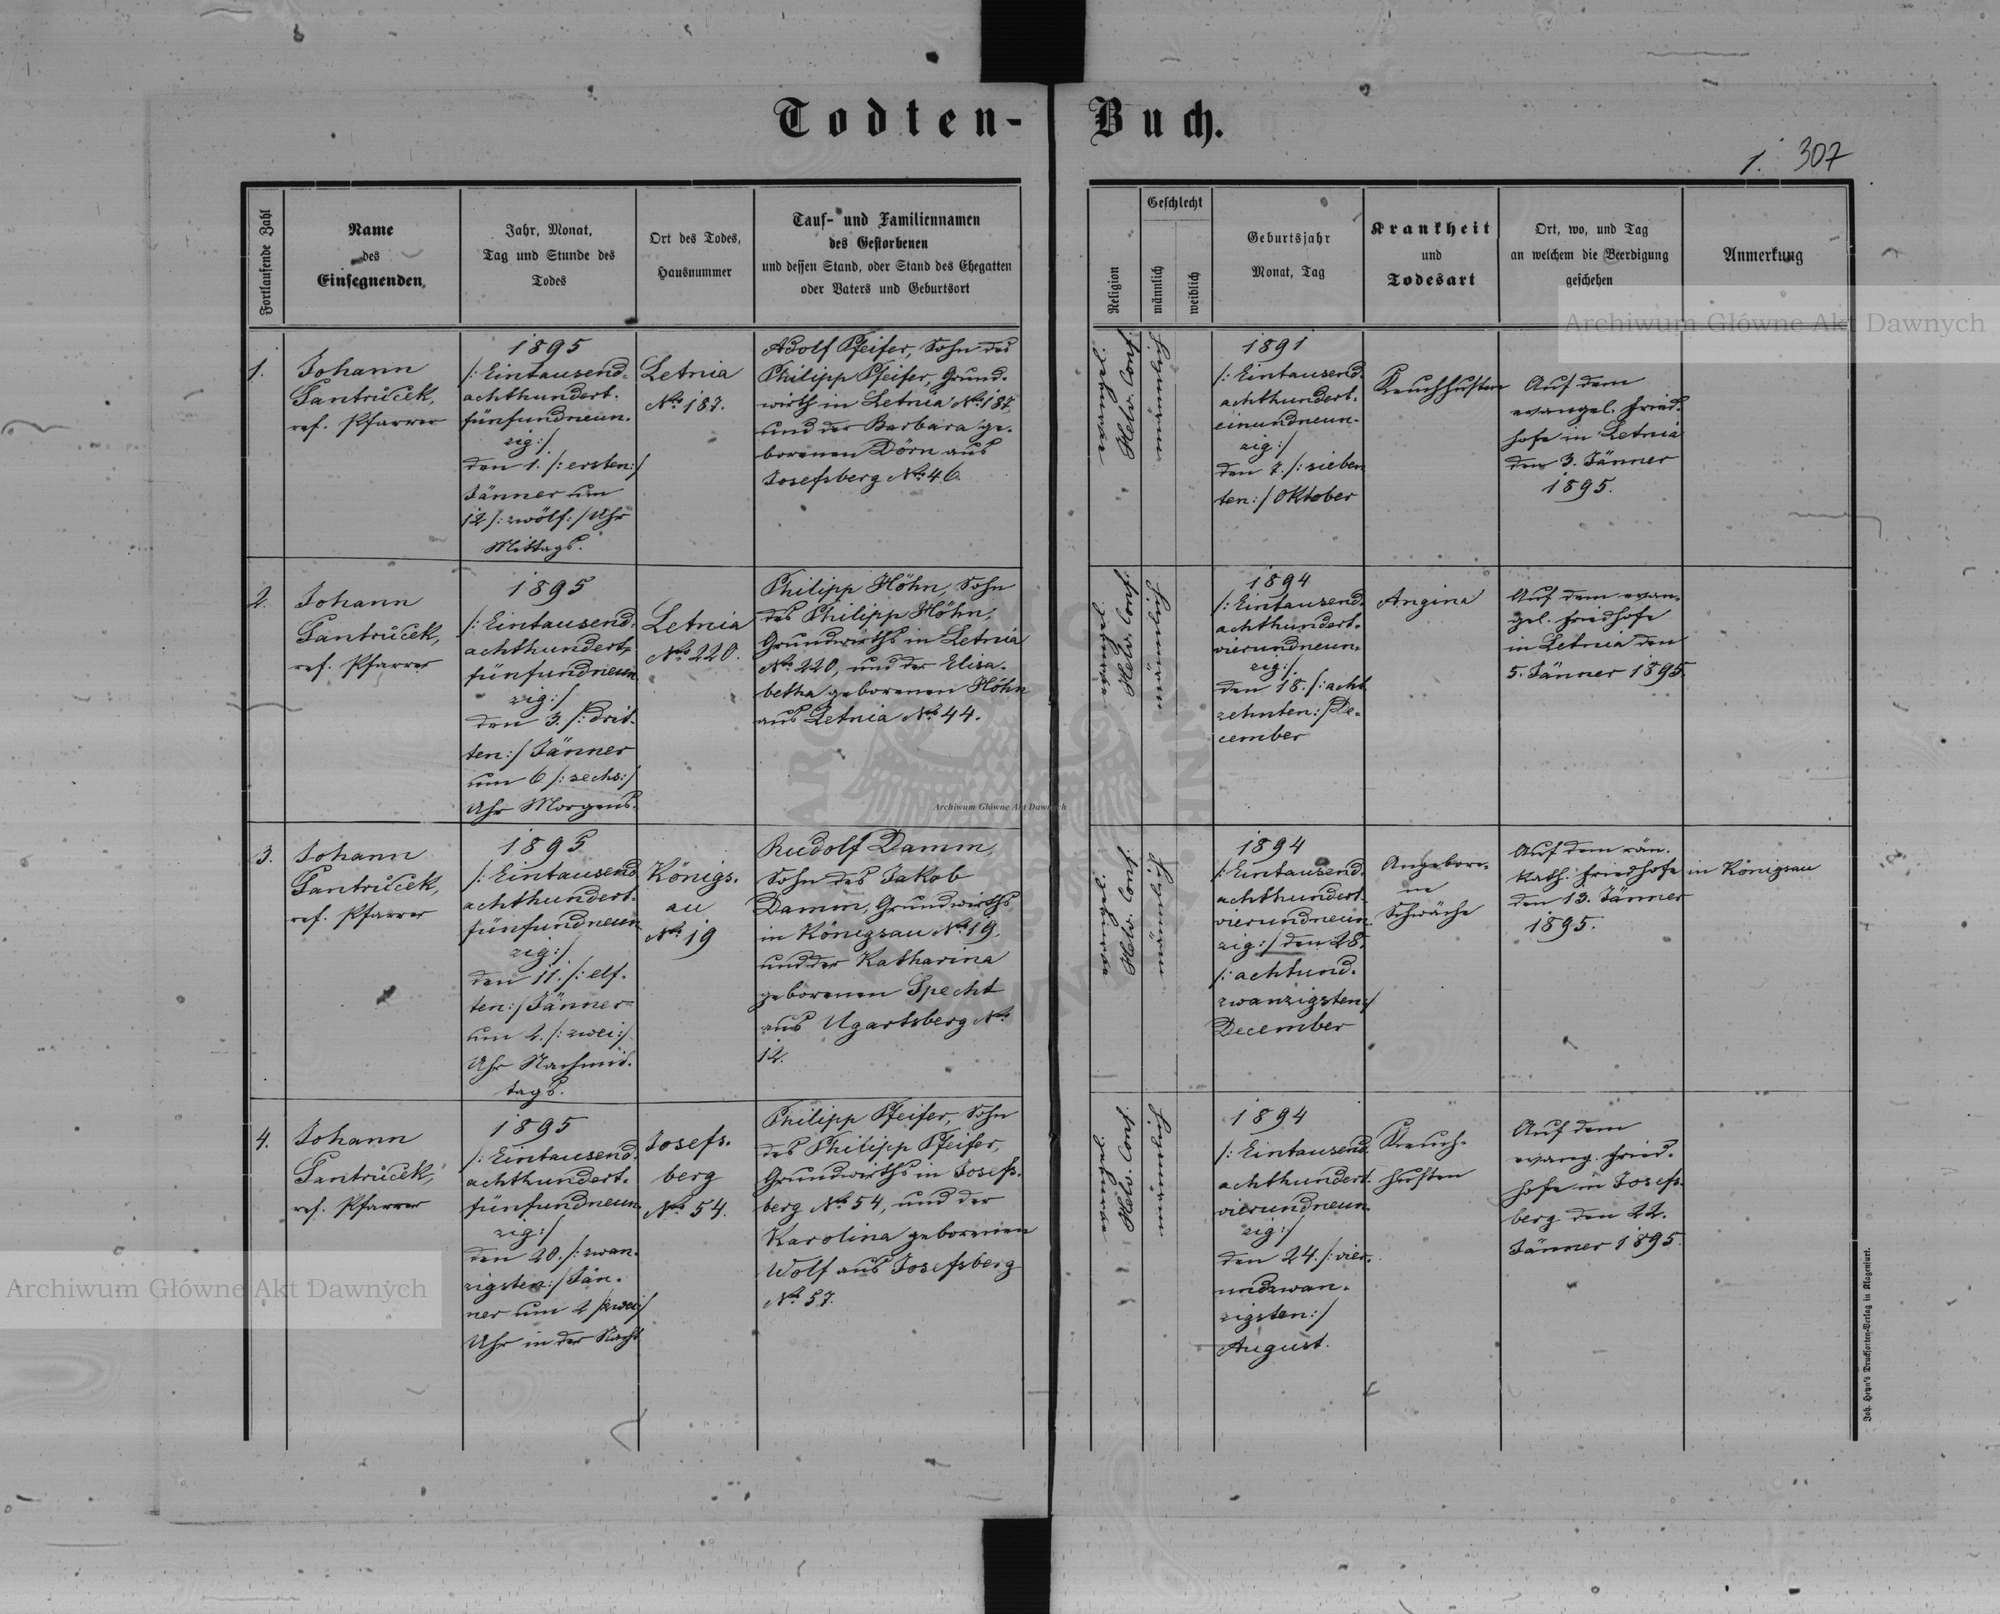 Todten-Buch.
1. 307
Fortlaufende Zahl
Name
des
Einsegnenden
Jahr, Monat,
Tag und Stunde des
Todes
Ort des Todes,
Hausnummer
Tauf- und Familiennamen
des Gestorbenen
und dessen Stand, oder Stand des Ehegatten
oder Vaters und Geburtsort
Religion
Geschlecht
männlich
weiblich
Geburtsjahr
Monat, Tag
Krankheit
und
Todesart
Ort, wo, und Tag
an welchem die Beerdigung
geschehen
Anmerkung
Archiwum Główne Akt Dawnych
1.
Johann
Jantrůcek,
ref. Pfarrer
1895
/: Eintausend-
achthundert-
fünfundneun-
zig :/
den 1. /: ersten :/
Jänner um
12 /: zwölf :/ Uhr
Mittags.
Letnia
No 187.
Adolf Pfeifer, Sohn des
Philipp Pfeifer, Grund-
wirth in Letnia No 187,
und der Barbara ge-
borenen Dörn aus
Josefsberg No 46.
evangel.
Helv. Conf.
männlich
1891
/: Eintausend-
achthundert-
einundneun-
zig :/
den 7. /: sieben
ten :/ Oktober
Keuchhusten
Auf dem
evangel. Fried-
hofe in Letnia
den 3. Jänner
1895.
2.
Johann
Jantrůcek,
ref. Pfarrer
1895
/: Eintausend-
achthundert-
fünfundneun-
zig :/
den 3. /: drit-
ten :/ Jänner
um 6 /: sechs :/
Uhr Morgens.
Letnia
No 220.
Philipp Höhn, Sohn
des Philipp Höhn,
Grundwirths in Letnia
No 220, und der Elisa-
betha geborenen Höhn
aus Letnia No 44.
evangel.
Helv. Conf.
männlich
1894
/: Eintausend-
achthundert-
vierundneun-
zig :/
den 18. /: acht
zehnten :/ De-
cember
Angina
Auf dem evan-
gel. Friedhofe
in Letnia den
5. Jänner 1895.
Archiwum Główne Akt Dawnych
3.
Johann
Jantrůcek,
ref. Pfarrer
1895
/: Eintausend
achthundert-
fünfundneun-
zig :/
den 11. /: elf-
ten :/ Jänner
um 2. /: zwei :/
Uhr Nachmit-
tags.
Königs-
au
No 19
Rudolf Damm,
Sohn des Jakob
Damm, Grundwirths
in Königsau No 19.
und der Katharina
geborenen Specht
aus Ugartsberg No
12.
evangel.
Helv. Conf.
männlich
1894
/: Eintausend-
achthundert-
vierundneun
zig :/ den 28.
/: achtund-
zwanzigsten :/
December
Angebore-
ne
Schwäche
Auf dem röm.
kath. Friedhofe in Königsau
den 13. Jänner
1895.
4.
Johann
Jantrůcek,
ref. Pfarrer
1895
/: Eintausend-
achthundert-
fünfundneun-
zig :/
den 20. /: zwan-
zigsten :/ Jän-
ner um 2 /: zwei :/
Uhr in der Nacht
Josefs-
berg
No 54.
Philipp Pfeifer, Sohn
des Philipp Pfeifer,
Grundwirths in Josefs-
berg No 54, und der
Karolina geborenen
Wolf aus Josefsberg
No 57.
evangel.
Helv. Conf.
männlich
1894
/: Eintausend-
achthundert-
vierundneun-
zig :/
den 24. /: vier-
undzwan-
zigsten :/
August.
Keuch-
husten
Auf dem
evang. Fried-
hofe in Josefs-
berg den 22.
Jänner 1895.
Archiwum Główne Akt Dawnych
Joh. Heyn's Drucksorten-Verlag in Klagenfurt.